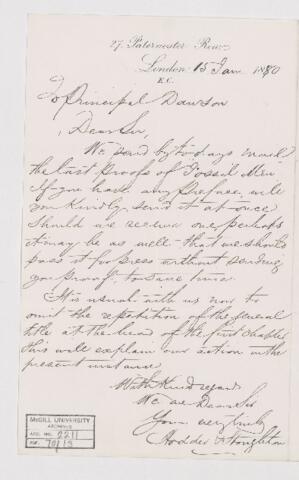 27, Paternoster Row,
London 15 Jan 1880
E.C.
To Principal Dawson
Dear Sir,
We send by todays mail
the last proofs of Fossil Men
If you have any Preface, will
you kindly send it at once
Should we receive one perhaps
it may be as well that we should
pass it for press without sending
you proof, to save time.
It is usual with us now to
omit the repetition of the general
title at the head of the first chapter
this will explain our action in the
present instance.
With kind regards
We are Dear Sir
Yours very truly
Hodder & Stoughton
McGILL UNIVERSITY
ARCHIVES
ACC. NO. 2211
REF.